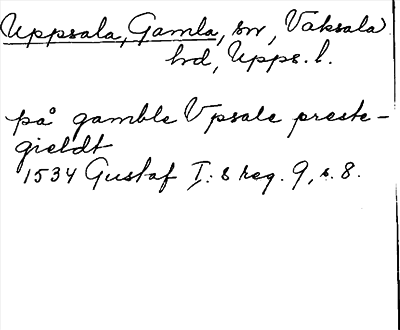 Uppsala, Gamla, sn, Vaksala
hd, Upps. l.
på gamble Vpsale preste-
gieldt
1534 Gustaf I:s reg. 9, s. 8.